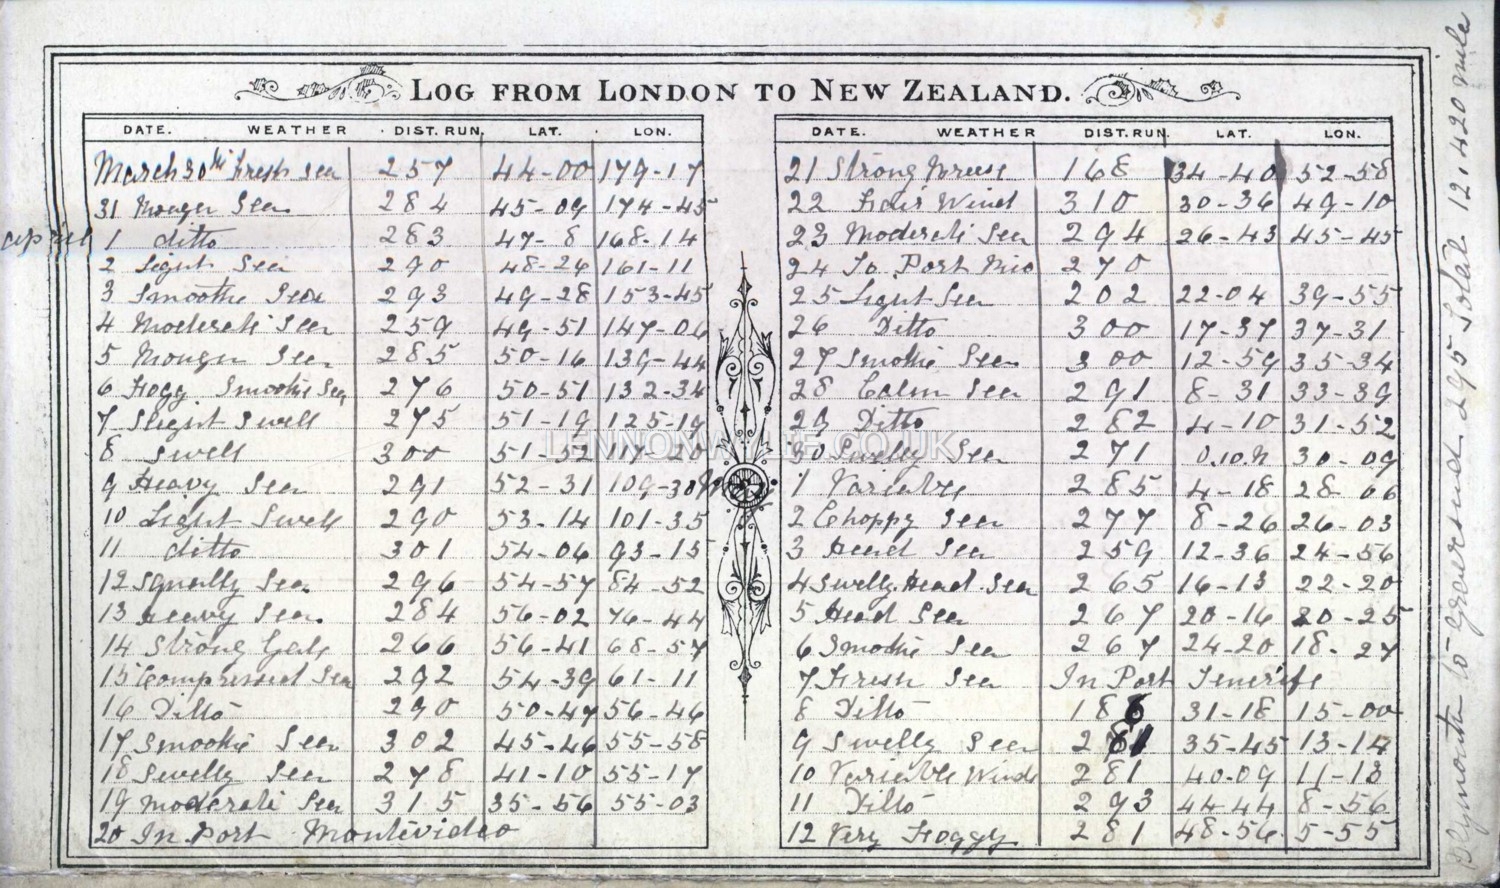 LOG FROM LONDON TO NEW ZEALAND.
DATE. WEATHER DIST. RUN. LAT. LON.
March 30th Fresh Sea 257 44-00 179-17
31 Sea 284 45-09 174-45
april 1 ditto 283 47-8 168-14
2 Light Sea 290 48-26 161-11
3 Smoothe Sea 293 49-28 153-45
4 Moderate Sea 259 49-51 147-06
5 Sea 285 50-16 139-44
6 Fogg. Smoothe Sea 276 50-51 132-34
7 Slight Swell 275 51-19 125-19
8 Swell 300 51-52 117-20
9 Heavy Sea 291 52-31 109-30
10 Light Swell 290 53-14 101-35
11 ditto 301 54-06 93-15
12 Squally Sea. 296 54-57 84-52
13 Heavy Sea. 284 56-02 76-44
14 Strong Gale 266 56-41 68-57
15 Compressed Sea 292 54-39 61-11
16 Ditto 290 50-47 56-46
17 Smooth Sea 302 45-46 55-58
18 Swelly Sea 278 41-10 55-17
19 Moderate Sea 315 35-56 55-03
20 In Port Montevideo
DATE. WEATHER DIST. RUN. LAT. LON.
21 Strong Breese 168 34-40 52-58
22 Fair Wind 310 30-36 49-10
23 Moderate Sea 294 26-43 45-45
24 To Port Rio 270
25 Light Sea 202 22-04 39-55
26 Ditto 300 17-37 37-31
27 Smothe Sea 300 12-59 35-34
28 Calm Sea 291 8-31 33-39
29 Ditto 282 4-10 31-52
30 Swelly Sea 271 0.10.N 30-09
May 1 Variable 285 4-18 28-06
2 Choppy Sea 277 8-26 26-03
3 Head Sea 259 12-36 24-56
4 Swelly Head Sea 265 16-13 22-20
5 Head Sea 267 20-16 20-25
6 Smothe Sea 267 24-20 18-27
7 Fresh Sea In Port Tenerife
8 Ditto 186 31-18 15-00
9 Swelly Sea 281 35-45 13-14
10 Variable Winds 281 40-09 11-13
11 Ditto 293 44-44 8-56
12 Very Foggy 281 48-56 5-55
Plymouth to gravesend 295 Total 12,420 mile
LENNONWYLIE.CO.UK